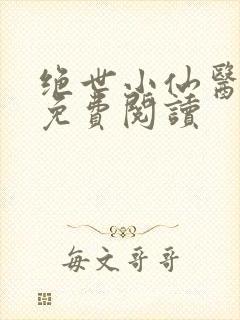 绝世小仙醫
免費閱讀
每文哥哥